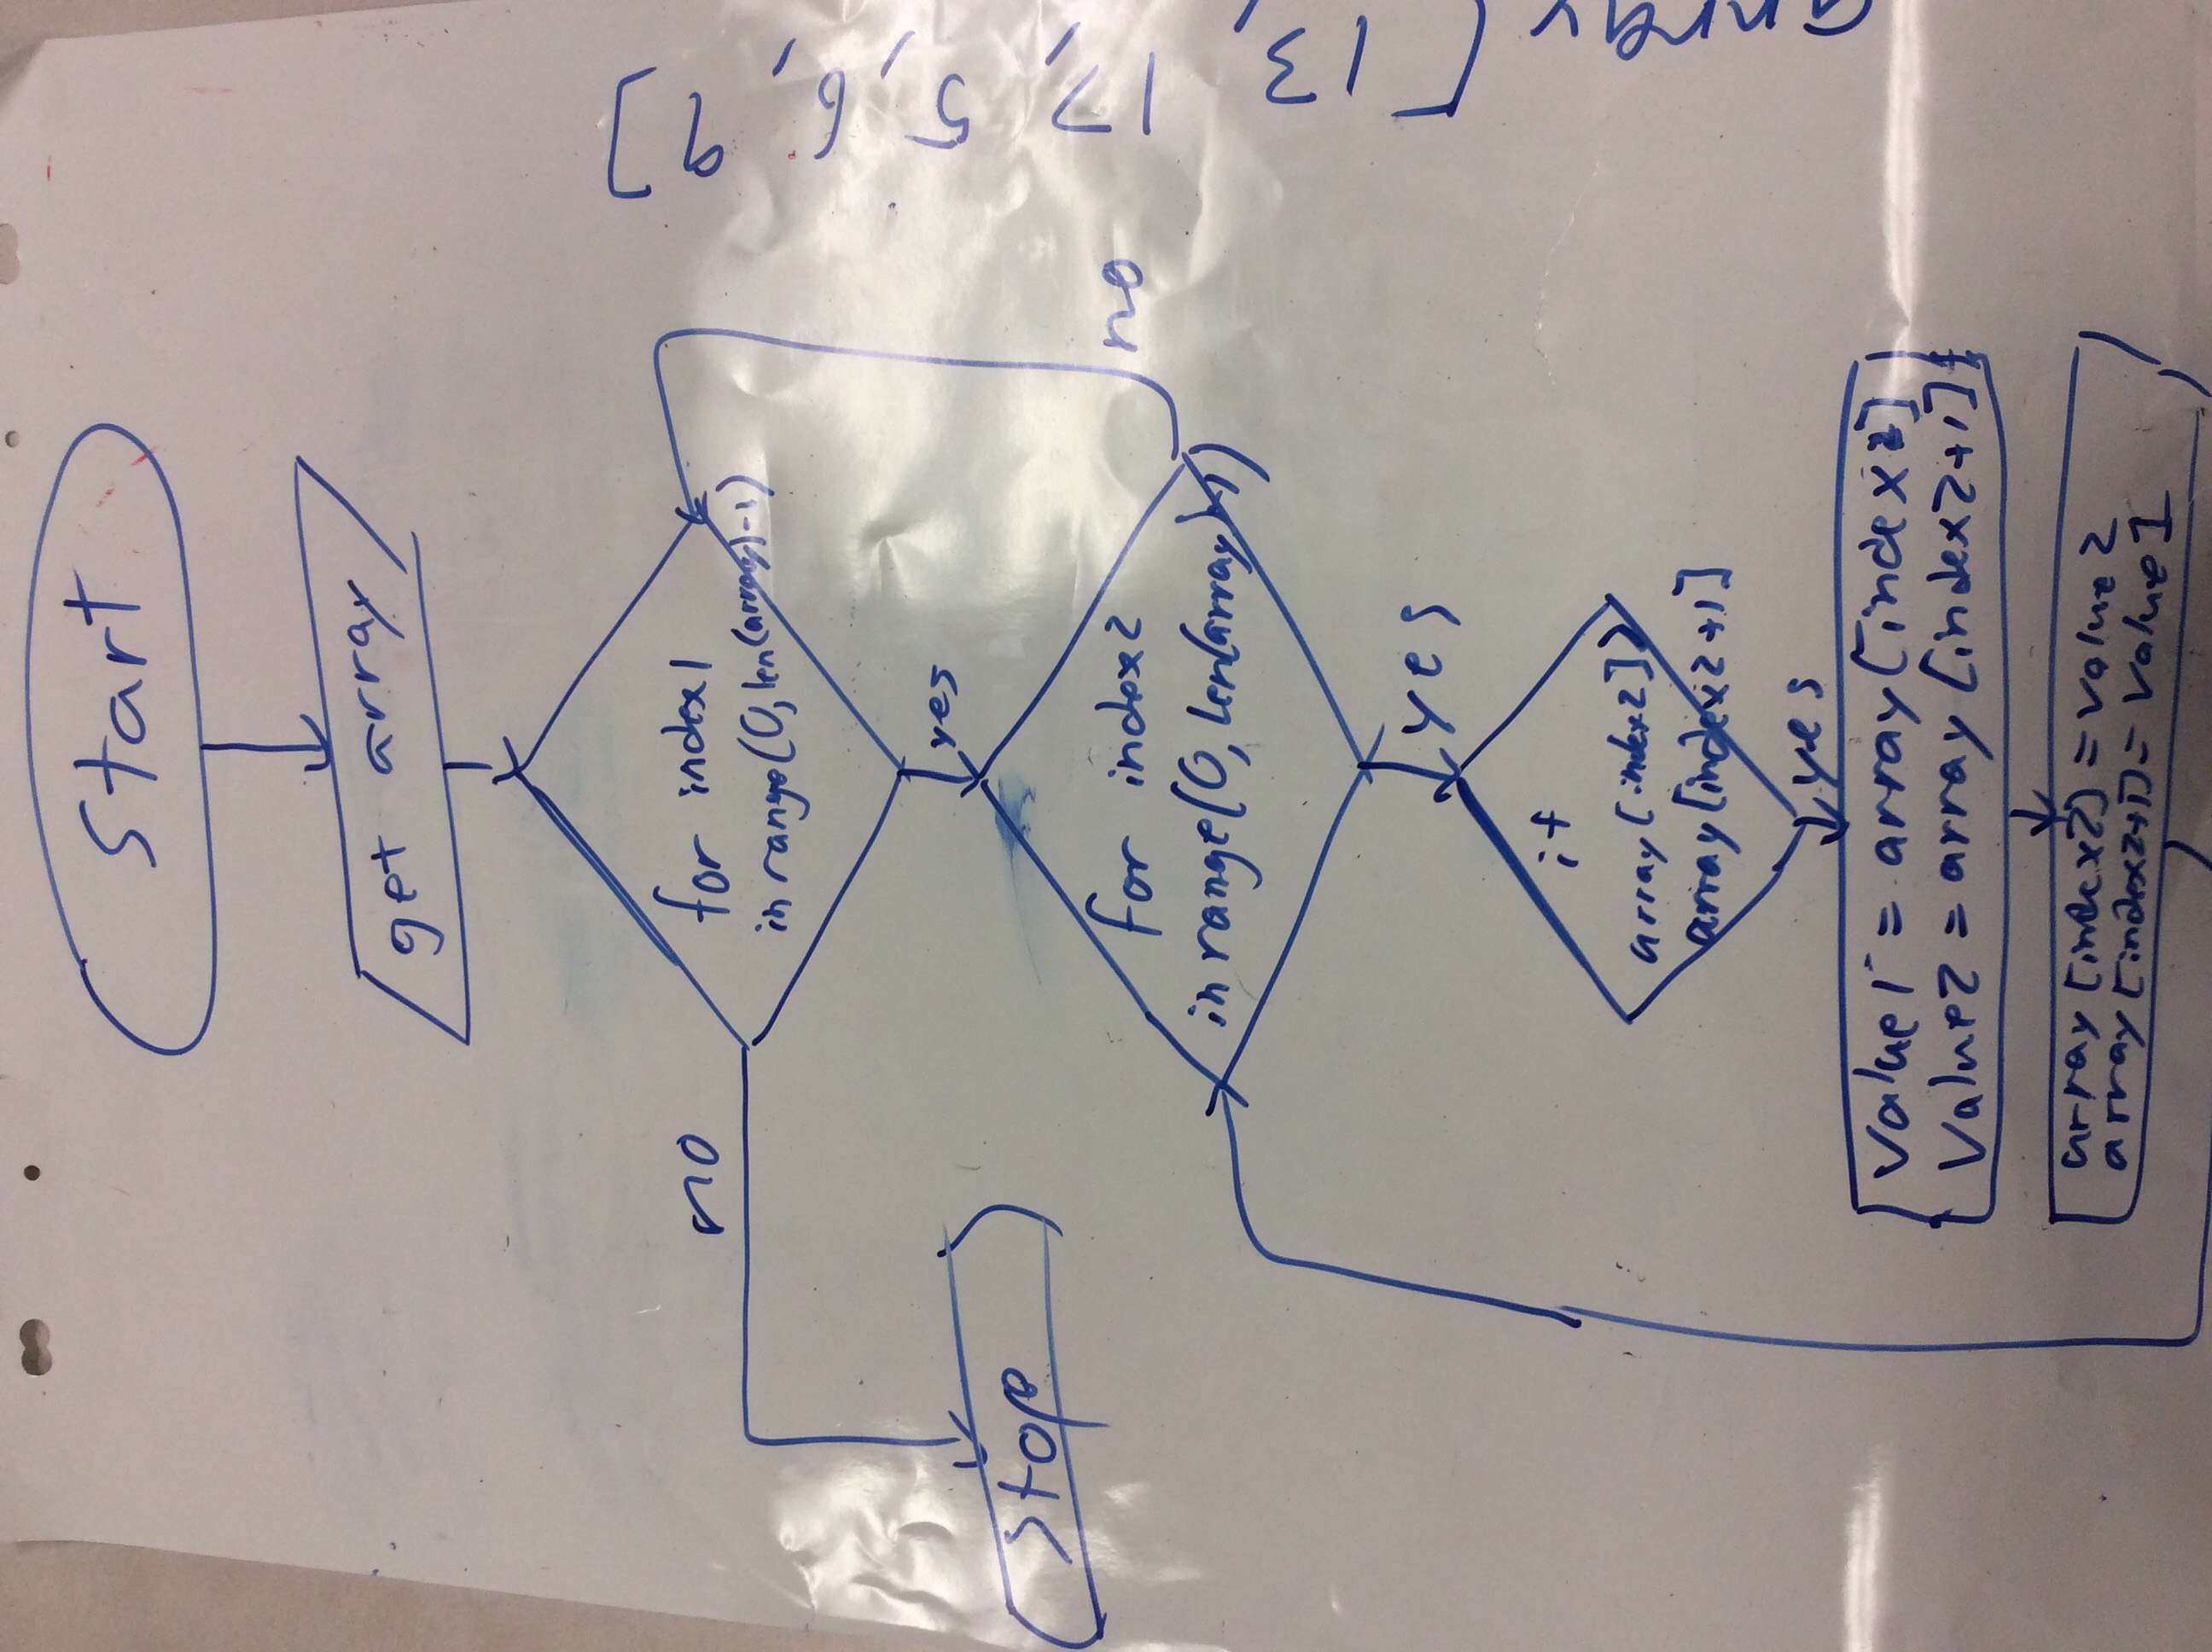 Start
get array
for index1
in range(0, len(array)-1)
no
yes
stop
for index2
in range(0, len(array)-1)
no
yes
if
array[index2]>
array[index2+1]
yes
value1 = array[index2]
value2 = array[index2+1]
array[index2] = value2
array[index2+1] = value1
[13, 17, 5, 6, 9]